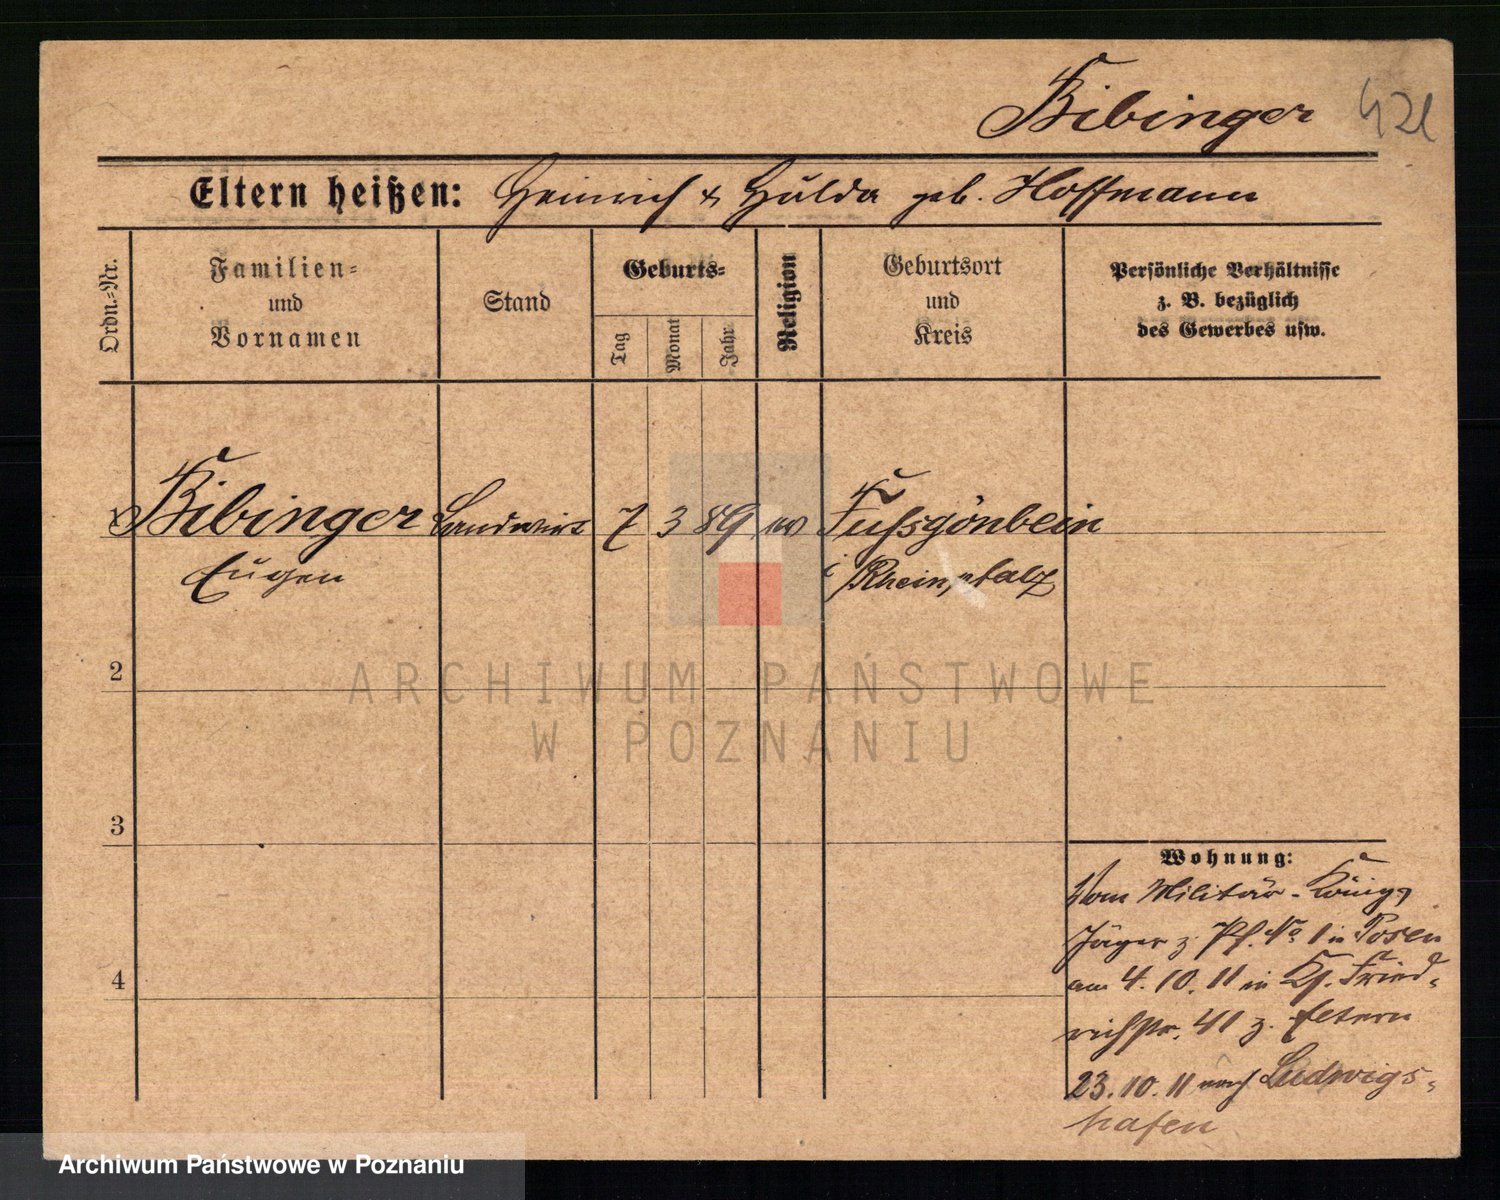 Bibinger
Eltern heißen: Heinrich & Hulda geb. Hoffmann
Ordn.-Nr.
Familien-
und
Vornamen
Stand
Geburts-
Tag
Monat
Jahr
Religion
Geburtsort
und
Kreis
Persönliche Verhältnisse
z. B. bezüglich
des Gewerbes usw.
Bibinger Landwirt 7 3 89 Fußgönheim
Eugen i/Rheinpfalz
2
3
4
Wohnung:
Vom Militär-Königs
Jäger z. Pf. No 1 in Posen
am 4.10.11 in Kl. Fried-
richstr. 41 z. Eltern
23.10.11 nach Ludwigs-
hafen
ARCHIWUM PAŃSTWOWE
W POZNANIU
Archiwum Państwowe w Poznaniu